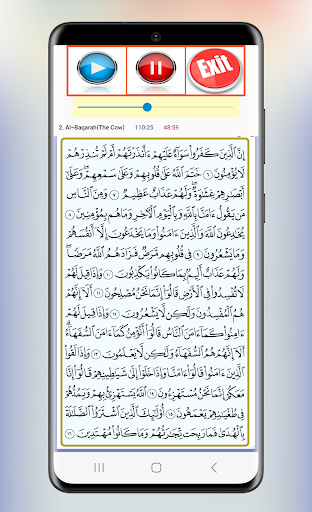 Exit
2. Al-Baqarah(The Cow) 110:25 48:59
إِنَّ ٱلَّذِينَ كَفَرُواْ سَوَآءٌ عَلَيْهِمْ ءَأَنذَرْتَهُمْ أَمْ لَمْ تُنذِرْهُمْ
لَا يُؤْمِنُونَ ٦ خَتَمَ ٱللَّهُ عَلَىٰ قُلُوبِهِمْ وَعَلَىٰ سَمْعِهِمْۖ وَعَلَىٰٓ
أَبْصَٰرِهِمْ غِشَٰوَةٌۖ وَلَهُمْ عَذَابٌ عَظِيمٌ ٧ وَمِنَ ٱلنَّاسِ
مَن يَقُولُ ءَامَنَّا بِٱللَّهِ وَبِٱلْيَوْمِ ٱلْأٓخِرِ وَمَا هُم بِمُؤْمِنِينَ ٨
يُخَٰدِعُونَ ٱللَّهَ وَٱلَّذِينَ ءَامَنُواْ وَمَا يَخْدَعُونَ إِلَّآ أَنفُسَهُمْ
وَمَا يَشْعُرُونَ ٩ فِي قُلُوبِهِم مَّرَضٌ فَزَادَهُمُ ٱللَّهُ مَرَضًاۖ
وَلَهُمْ عَذَابٌ أَلِيمٌۢ بِمَا كَانُواْ يَكْذِبُونَ ١٠ وَإِذَا قِيلَ لَهُمْ
لَا تُفْسِدُواْ فِي ٱلْأَرْضِ قَالُوٓاْ إِنَّمَا نَحْنُ مُصْلِحُونَ ١١ أَلَآ إِنَّهُمْ
هُمُ ٱلْمُفْسِدُونَ وَلَٰكِن لَّا يَشْعُرُونَ ١٢ وَإِذَا قِيلَ لَهُمْ
ءَامِنُواْ كَمَآ ءَامَنَ ٱلنَّاسُ قَالُوٓاْ أَنُؤْمِنُ كَمَآ ءَامَنَ ٱلسُّفَهَآءُۗ
أَلَآ إِنَّهُمْ هُمُ ٱلسُّفَهَآءُ وَلَٰكِن لَّا يَعْلَمُونَ ١٣ وَإِذَا لَقُواْ
ٱلَّذِينَ ءَامَنُواْ قَالُوٓاْ ءَامَنَّا وَإِذَا خَلَوْاْ إِلَىٰ شَيَٰطِينِهِمْ قَالُوٓاْ إِنَّا
مَعَكُمْ إِنَّمَا نَحْنُ مُسْتَهْزِءُونَ ١٤ ٱللَّهُ يَسْتَهْزِئُ بِهِمْ وَيَمُدُّهُمْ
فِي طُغْيَٰنِهِمْ يَعْمَهُونَ ١٥ أُوْلَٰٓئِكَ ٱلَّذِينَ ٱشْتَرَوُاْ ٱلضَّلَٰلَةَ
بِٱلْهُدَىٰ فَمَا رَبِحَت تِّجَٰرَتُهُمْ وَمَا كَانُواْ مُهْتَدِينَ ١٦